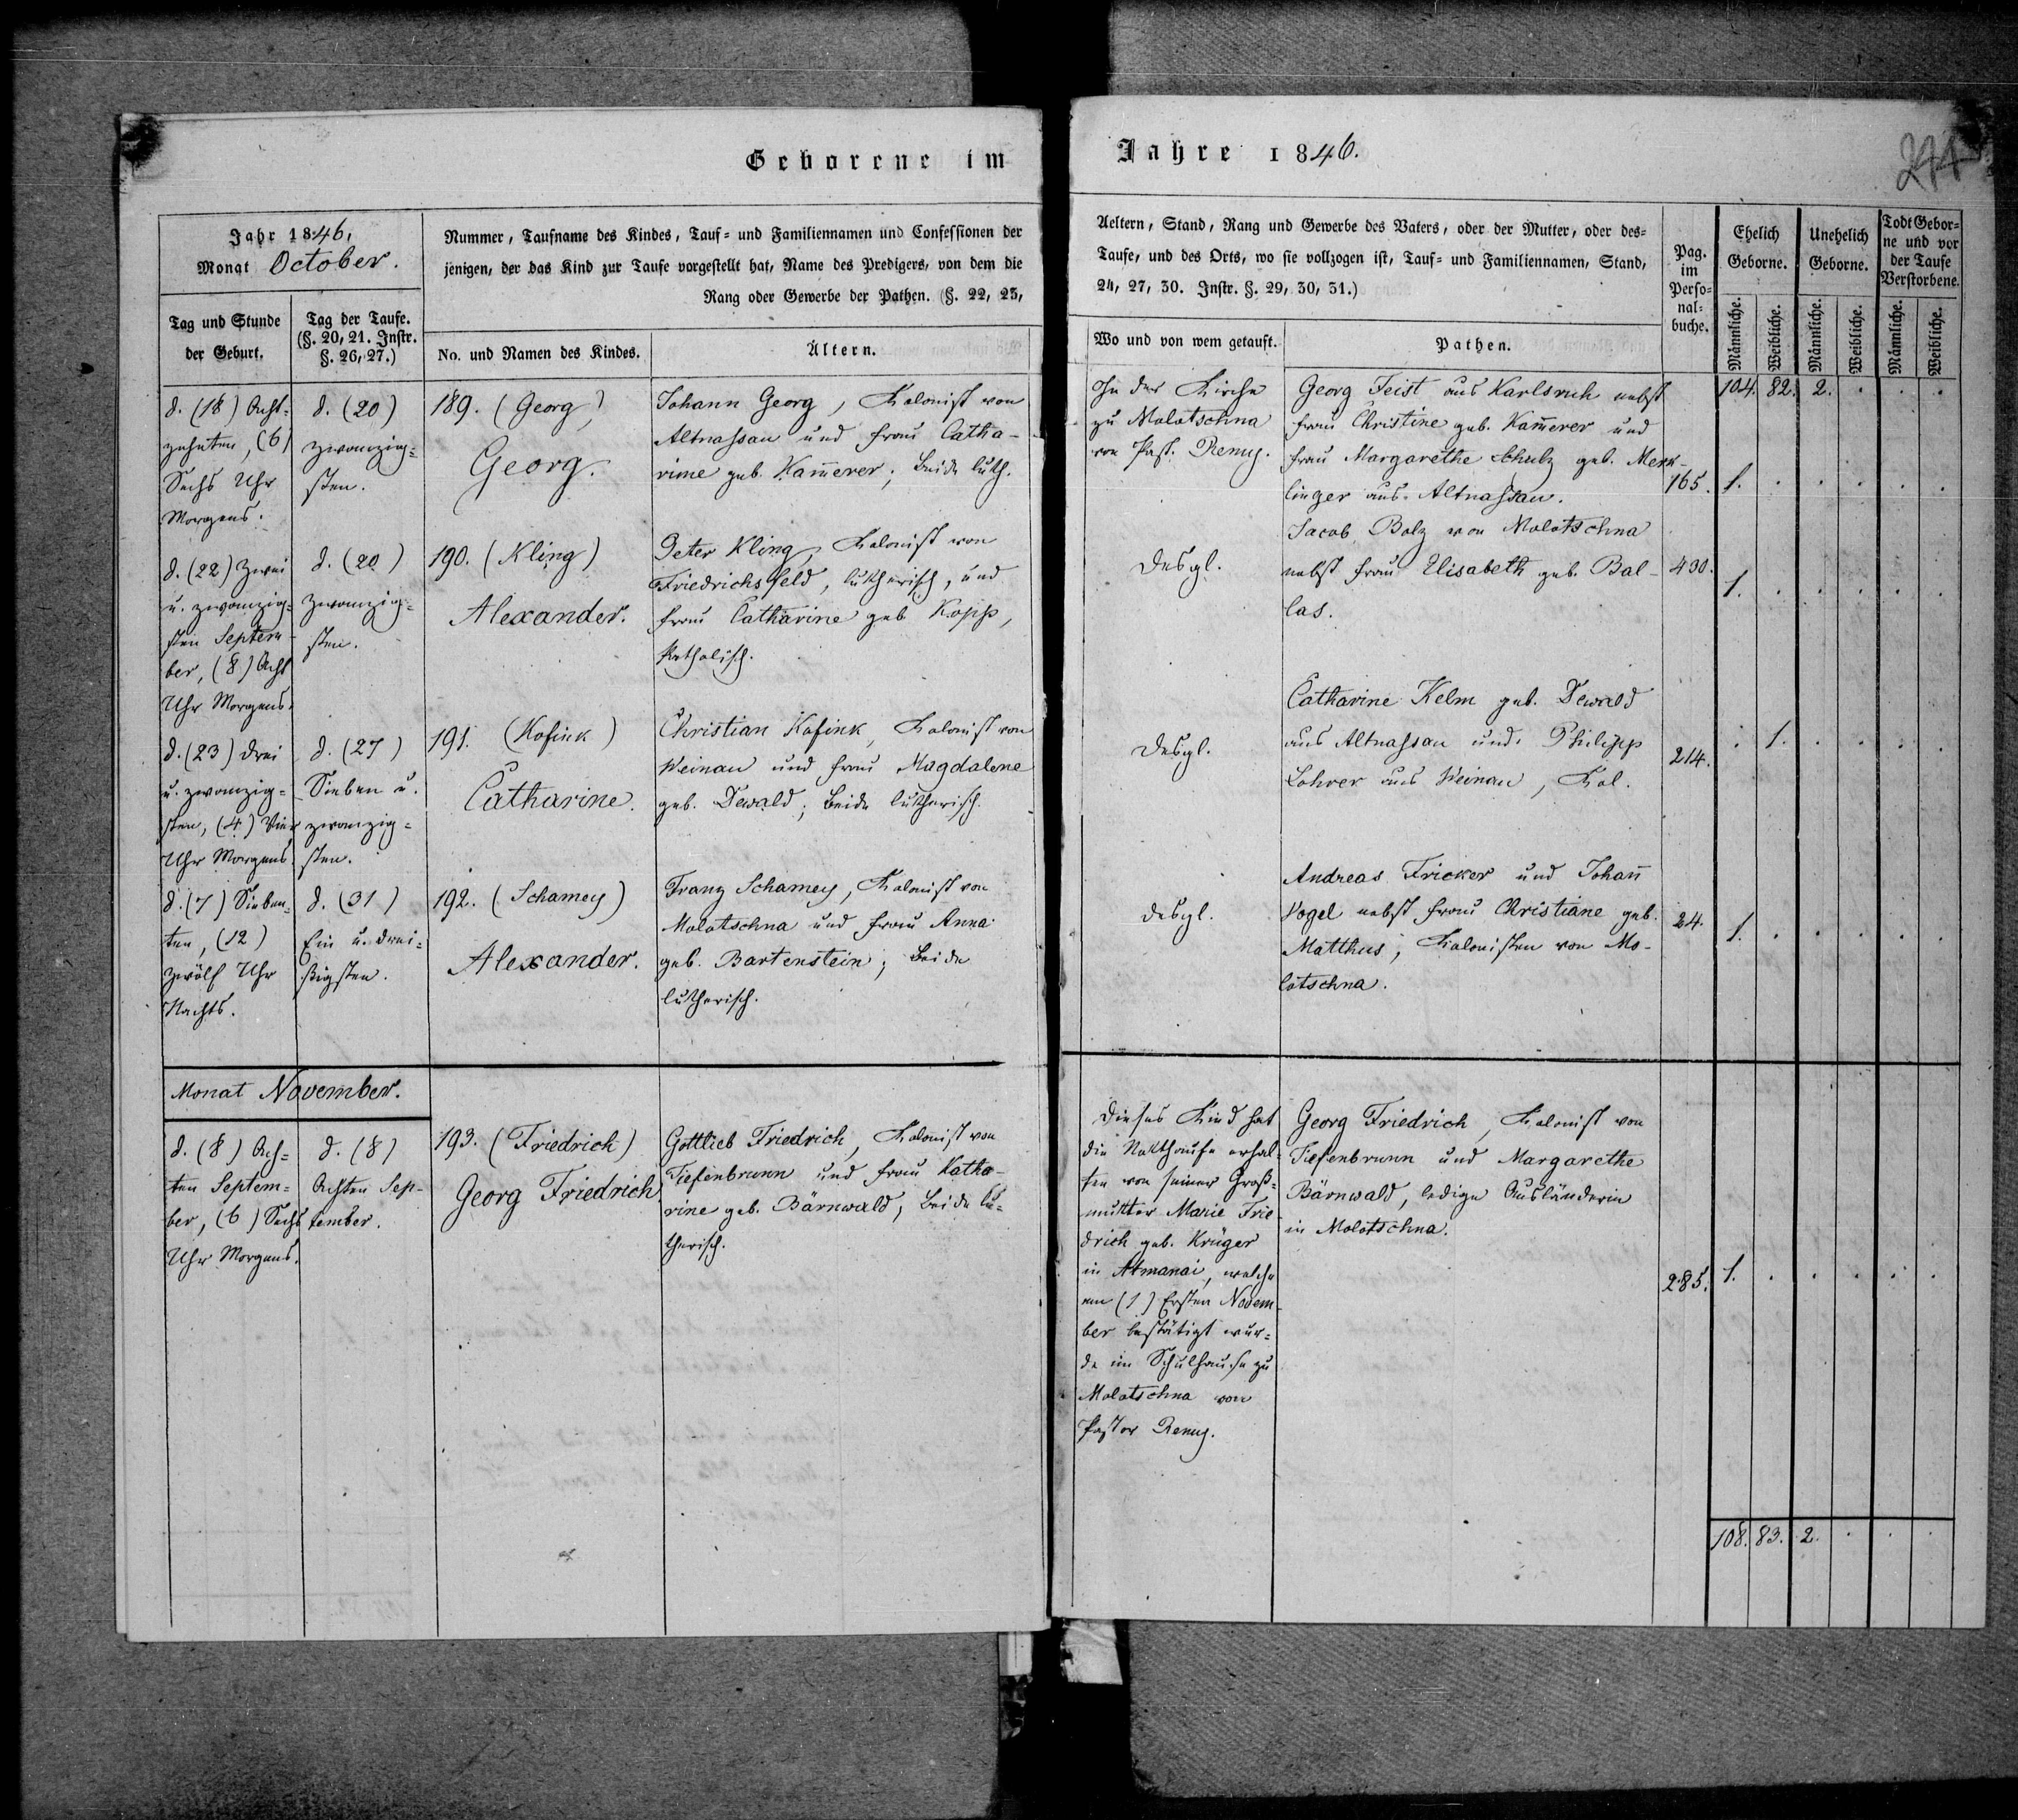 Geborene im
Jahr 1846,
Monat October.
Nummer, Taufname des Kindes, Tauf- und Familiennamen und Confessionen der
jenigen, der das Kind zur Taufe vorgestellt hat, Name des Predigers, von dem die
Rang oder Gewerbe der Pathen. (§. 22, 23,
Tag und Stunde
der Geburt.
Tag der Taufe.
(§. 20, 21. Instr.
§. 26, 27.)
No. und Namen des Kindes.
Ältern.
d. (18) Acht-
zehnten, (6)
Sechs Uhr
Morgens.
d. (20)
zwanzig-
sten.
189. (Georg)
Georg.
Johann Georg, Kolonist von
Altnassau und Frau Catha-
rine geb. Kam̄erer; beide luth.
d. (22) Zwei
u. zwanzig-
sten Septem-
ber, (8) Acht
Uhr Morgens.
d. (20)
Zwanzig-
sten.
190. (Kling)
Alexander.
Peter Kling, Kolonist von
Friedrichsfeld, lutherisch, und
Frau Catharine geb. Kopp,
katholisch.
d. (23) Drei
u. zwanzig-
sten, (4) Vier
Uhr Morgens.
d. (27)
Sieben u.
zwanzig-
sten.
191. (Kofink)
Catharine.
Christian Kofink, Kolonist von
Weinau und Frau Magdalene
geb. Dewald; beide lutherisch.
d. (7) Sieben-
ten, (12)
Zwölf Uhr
Nachts.
d. (31)
Ein u. drei-
ßigsten.
192. (Schamey)
Alexander.
Franz Schamey, Kolonist von
Molotschna und Frau Anna
geb. Bartenstein; beide
lutherisch.
Monat November.
d. (8) Ach-
ten Septem-
ber, (6) Sechs
Uhr Morgens.
d. (8)
Achten Sep-
tember.
193. (Friedrich)
Georg Friedrich
Gottlieb Friedrich, Kolonist von
Tiefenbrunn und Frau Katha-
rine geb. Bärnwald; beide lu-
therisch.
Jahre 1846.
Aeltern, Stand, Rang und Gewerbe des Vaters, oder der Mutter, oder des-
Taufe, und des Orts, wo sie vollzogen ist, Tauf- und Familiennamen, Stand,
24, 27, 30. Instr. §. 29, 30, 31.)
Wo und von wem getauft.
Pathen.
Pag.
im
Perso-
nal-
buche.
Ehelich
Geborne.
Unehelich
Geborne.
Todt Gebor-
ne und vor
der Taufe
Verstorbene.
Männliche.
Weibliche.
Männliche.
Weibliche.
Männliche.
Weibliche.
104. 82. 2. . . .
In der Kirche
zu Molotschna
von Past. Remy.
Georg Feist aus Karlsruh nebst
Frau Christine geb. Kam̄erer und
Frau Margarethe Schulz geb. Merk-
linger aus Altnassau.
165. 1. . . . . .
Desgl.
Jacob Bolz von Molotschna
nebst Frau Elisabeth geb. Bal-
las.
430. 1. . . . . .
Desgl.
Catharine Kelm geb. Dewald
aus Altnassau und Philipp
Lohrer aus Weinau, Kol.
214. . 1. . . . .
Desgl.
Andreas Fricker und Johan̄
Vogel nebst Frau Christiane geb.
Matthus, Kolonisten von Mo-
lotschna.
24. 1. . . . . .
Dieses Kind hat
die Nothtaufe erhal-
ten von seiner Groß-
mutter Marie Frie-
drich geb. Krüger
in Atmanai, welche
am (1) Ersten Novem-
ber bestätigt wur-
de im Schulhause zu
Molotschna von
Pastor Remy.
Georg Friedrich, Kolonist von
Tiefenbrunn und Margarethe
Bärnwald, ledige Ausländerin
in Molotschna.
285. 1. . . . . .
108. 83. 2. . . .